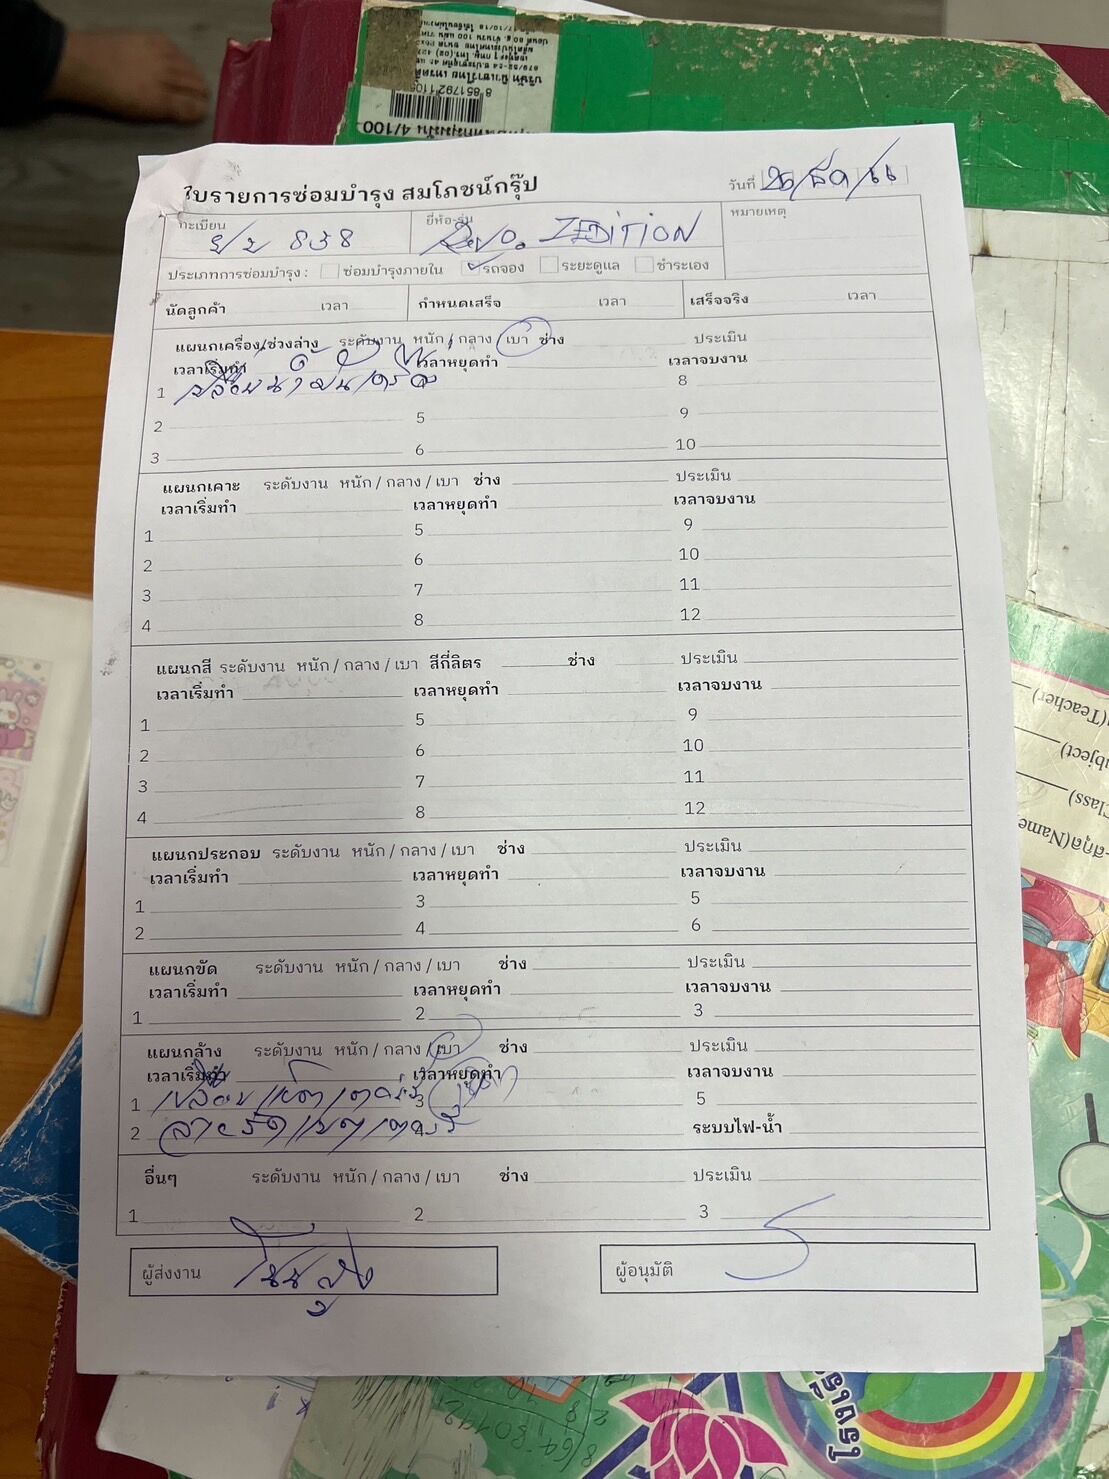 ใบรายการซ่อมบำรุง สมโภชน์กรุ๊ป
วันที่ 26/ธค/66
ทะเบียน ยี่ห้อ-รุ่น หมายเหตุ
838 Revo ZEDITION
ประเภทการซ่อมบำรุง : ซ่อมบำรุงภายใน รถจอง ระยะดูแล ชำระเอง
นัดลูกค้า เวลา กำหนดเสร็จ เวลา เสร็จจริง เวลา
แผนกเครื่อง/ช่วงล่าง ระดับงาน หนัก / กลาง / เบา ช่าง ประเมิน
เวลาเริ่มทำ เวลาหยุดทำ เวลาจบงาน
1 เปลี่ยนน้ำมันเครื่อง 8
2 5 9
3 6 10
แผนกเคาะ ระดับงาน หนัก / กลาง / เบา ช่าง ประเมิน
เวลาเริ่มทำ เวลาหยุดทำ เวลาจบงาน
1 5 9
2 6 10
3 7 11
4 8 12
แผนกสี ระดับงาน หนัก / กลาง / เบา สีกี่ลิตร ช่าง ประเมิน
เวลาเริ่มทำ เวลาหยุดทำ เวลาจบงาน
1 5 9
2 6 10
3 7 11
4 8 12
แผนกประกอบ ระดับงาน หนัก / กลาง / เบา ช่าง ประเมิน
เวลาเริ่มทำ เวลาหยุดทำ เวลาจบงาน
1 3 5
2 4 6
แผนกขัด ระดับงาน หนัก / กลาง / เบา ช่าง ประเมิน
เวลาเริ่มทำ เวลาหยุดทำ เวลาจบงาน
1 2 3
แผนกล้าง ระดับงาน หนัก / กลาง / เบา ช่าง ประเมิน
เวลาเริ่มทำ เวลาหยุดทำ เวลาจบงาน
1 เปลี่ยนแบตเตอรี่ 3 5
2 สายรัดแบตเตอรี่ ระบบไฟ-น้ำ
อื่นๆ ระดับงาน หนัก / กลาง / เบา ช่าง ประเมิน
1 2 3
ผู้ส่งงาน ผู้อนุมัติ
8 851792 110
4/100
(Teacher)
(Name